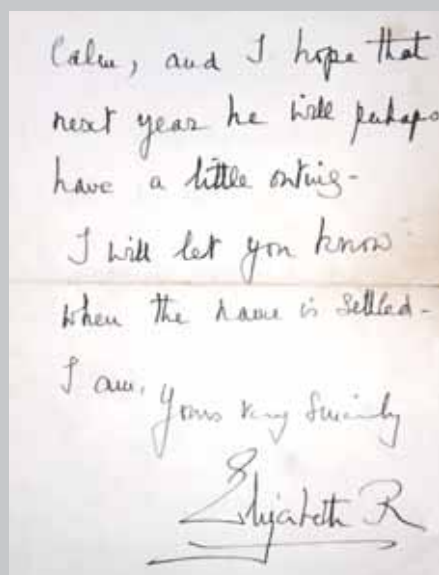 Calm, and I hope that
next year he will perhaps
have a little outing-
I will let you know
when the name is settled-
I am,
Yours very Sincerely
Elizabeth R